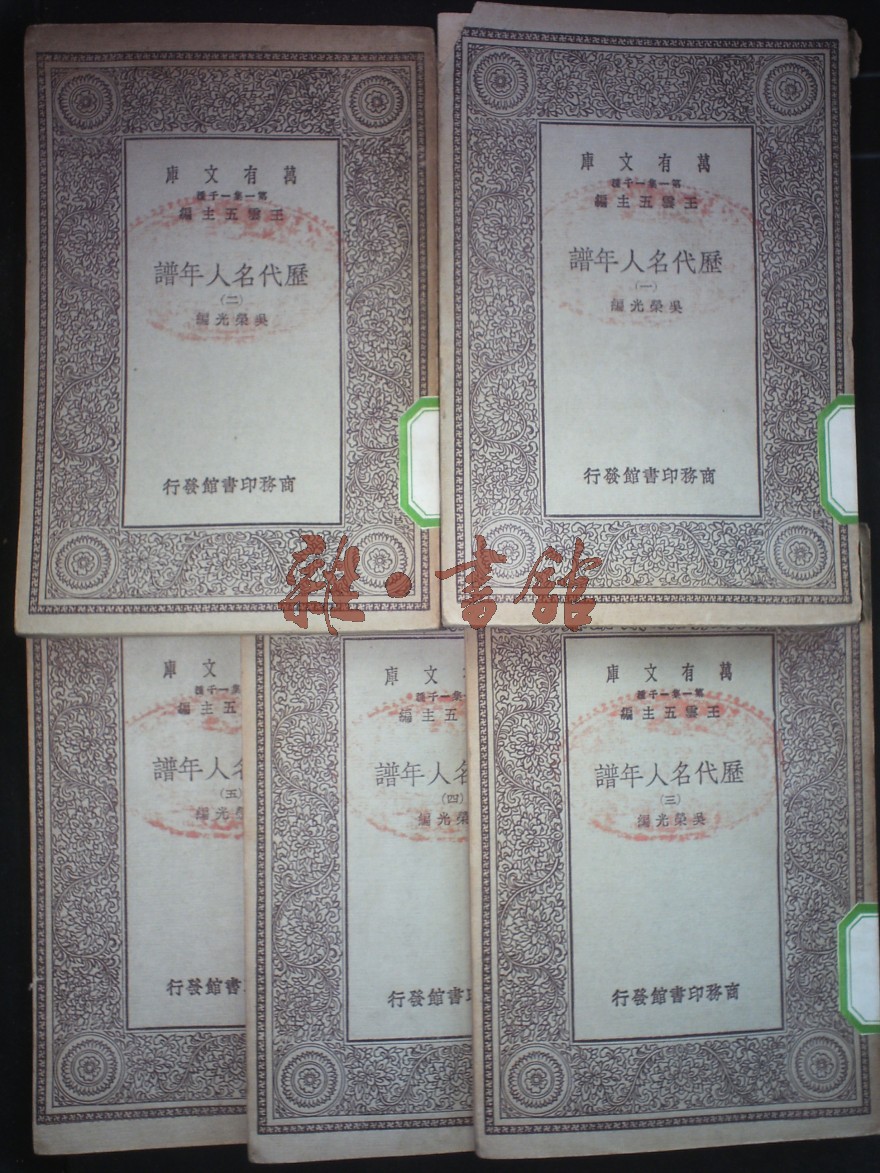 萬有文庫
第一集一千種
王雲五主編
歷代名人年譜
(一)
吳榮光編
商務印書館發行
萬有文庫
第一集一千種
王雲五主編
歷代名人年譜
(二)
吳榮光編
商務印書館發行
雜·書館
萬有文庫
第一集一千種
王雲五主編
歷代名人年譜
(三)
吳榮光編
商務印書館發行
文庫
集一千種
五主編
名人年譜
(四)
榮光編
印書館發行
文庫
集一千種
五主編
人年譜
(五)
光編
書館發行